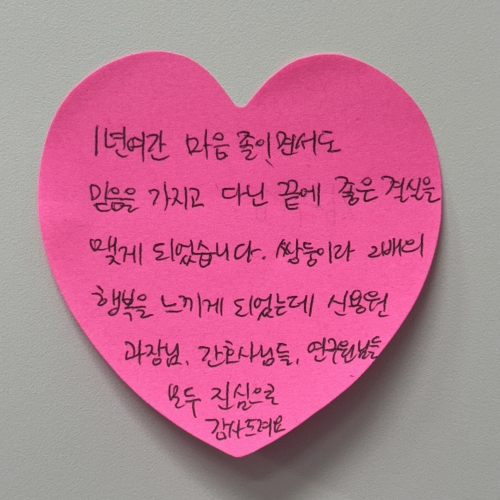 1년여간 마음 졸이면서도
믿음을 가지고 다닌 끝에 좋은 결실을
맺게 되었습니다. 쌍둥이라 2배의
행복을 느끼게 되었는데 신용원
과장님, 간호사님들, 연구원님들
모두 진심으로
감사드려요